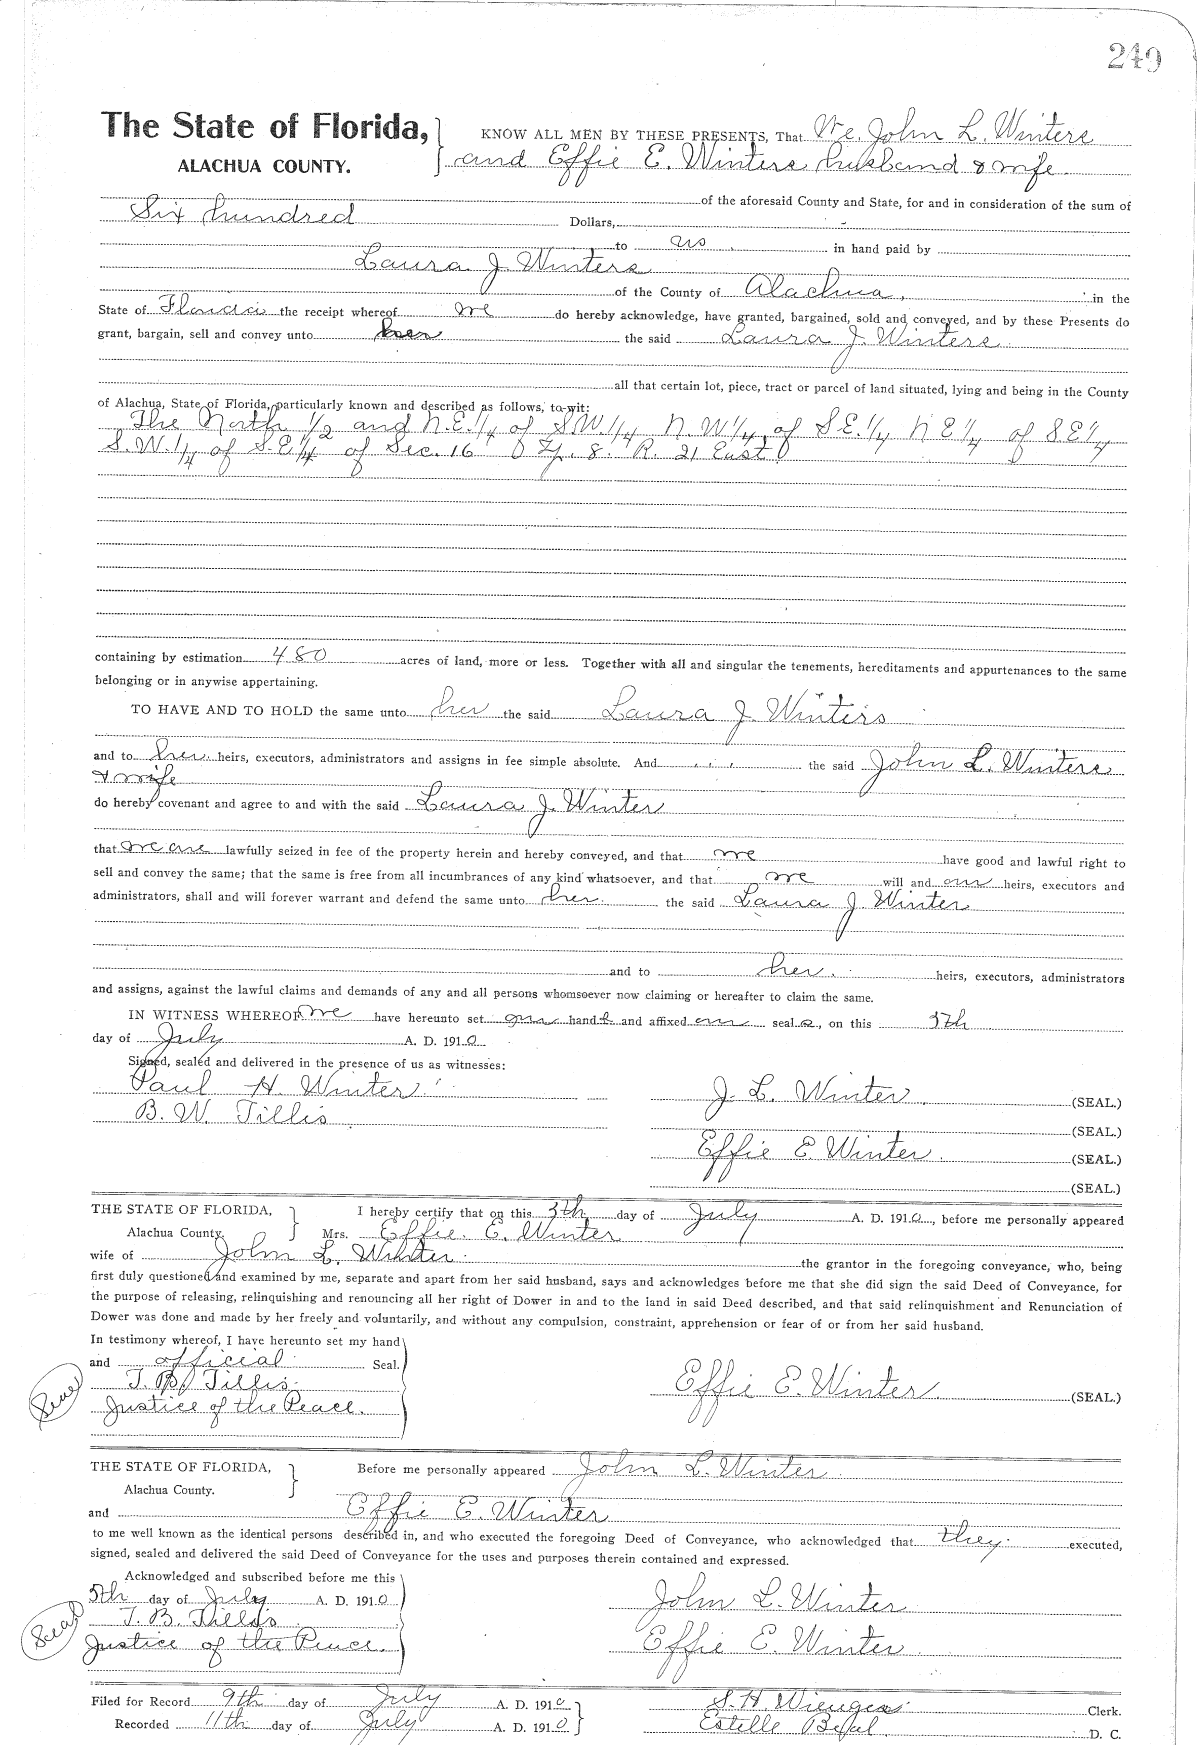 249
The State of Florida, KNOW ALL MEN BY THESE PRESENTS, That We, John L. Winters
ALACHUA COUNTY. and Effie E. Winters husband & wife
of the aforesaid County and State, for and in consideration of the sum of
Six hundred Dollars,
to us in hand paid by
Laura J Winters
of the County of Alachua, in the
State of Florida the receipt whereof we do hereby acknowledge, have granted, bargained, sold and conveyed, and by these Presents do
grant, bargain, sell and convey unto her the said Laura J. Winters
all that certain lot, piece, tract or parcel of land situated, lying and being in the County
of Alachua, State of Florida, particularly known and described as follows, to-wit:
The North 1/2 and N.E.1/4 of S.W.1/4 N.W.1/4 of S E.1/4 N E 1/4 of S.E 1/4
S.W.1/4 of S.E 1/4 of Sec. 16 Tp. 8. R. 21 East
containing by estimation 480 acres of land, more or less. Together with all and singular the tenements, hereditaments and appurtenances to the same
belonging or in anywise appertaining.
TO HAVE AND TO HOLD the same unto her the said Laura J Winters
and to her heirs, executors, administrators and assigns in fee simple absolute. And the said John L. Winters
& wife
do hereby covenant and agree to and with the said Laura J. Winter
that we are lawfully seized in fee of the property herein and hereby conveyed, and that we have good and lawful right to
sell and convey the same; that the same is free from all incumbrances of any kind whatsoever, and that we will and our heirs, executors and
administrators, shall and will forever warrant and defend the same unto her the said Laura J Winter
and to her heirs, executors, administrators
and assigns, against the lawful claims and demands of any and all persons whomsoever now claiming or hereafter to claim the same.
IN WITNESS WHEREOF we have hereunto set our hand s and affixed our seal s, on this 5th
day of July A. D. 1910
Signed, sealed and delivered in the presence of us as witnesses:
Paul H. Winter J. L. Winter (SEAL.)
B. W. Tillis (SEAL.)
Effie E. Winter (SEAL.)
(SEAL.)
THE STATE OF FLORIDA, I hereby certify that on this 5th day of July A. D. 1910, before me personally appeared
Alachua County. Mrs. Effie. E. Winter
wife of John L. Winter the grantor in the foregoing conveyance, who, being
first duly questioned and examined by me, separate and apart from her said husband, says and acknowledges before me that she did sign the said Deed of Conveyance, for
the purpose of releasing, relinquishing and renouncing all her right of Dower in and to the land in said Deed described, and that said relinquishment and Renunciation of
Dower was done and made by her freely and voluntarily, and without any compulsion, constraint, apprehension or fear of or from her said husband.
In testimony whereof, I have hereunto set my hand
and official Seal.
Seal T. B. Tillis Effie E. Winter (SEAL.)
Justice of the Peace.
THE STATE OF FLORIDA, Before me personally appeared John L. Winter
Alachua County.
and Effie E. Winter
to me well known as the identical persons described in, and who executed the foregoing Deed of Conveyance, who acknowledged that they executed,
signed, sealed and delivered the said Deed of Conveyance for the uses and purposes therein contained and expressed.
Acknowledged and subscribed before me this
5th day of July A. D. 1910 John L. Winter
Seal T. B. Tillis
Justice of the Peace. Effie E. Winter
Filed for Record 9th day of July A. D. 1910 S. H. Wienges Clerk.
Recorded 11th day of July A. D. 1910 Estelle D. C.